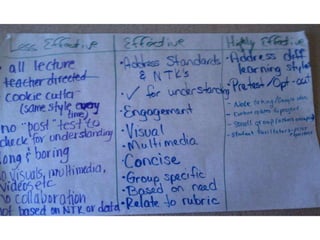 Less Effective
all lecture
teacher directed
cookie cutter
(same style every time)
no "post" test to
check for understanding
long & boring
no visuals, multimedia,
videos etc
no collaboration
not based on NTK or data
Effective
• Address Standards
& NTK's
• ✓ for understanding
• Engagement
• Visual
• Multimedia
• Concise
• Group specific
• Based on need
• Relate to rubric
Highly Effective
• Address diff
learning styles
• Pretest / Opt-out
• Note taking /
• Small group
• Student facilitators